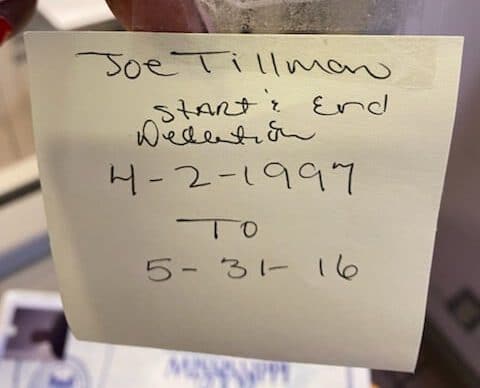 Joe Tillman
START & End
4-2-1997
TO
5-31-16